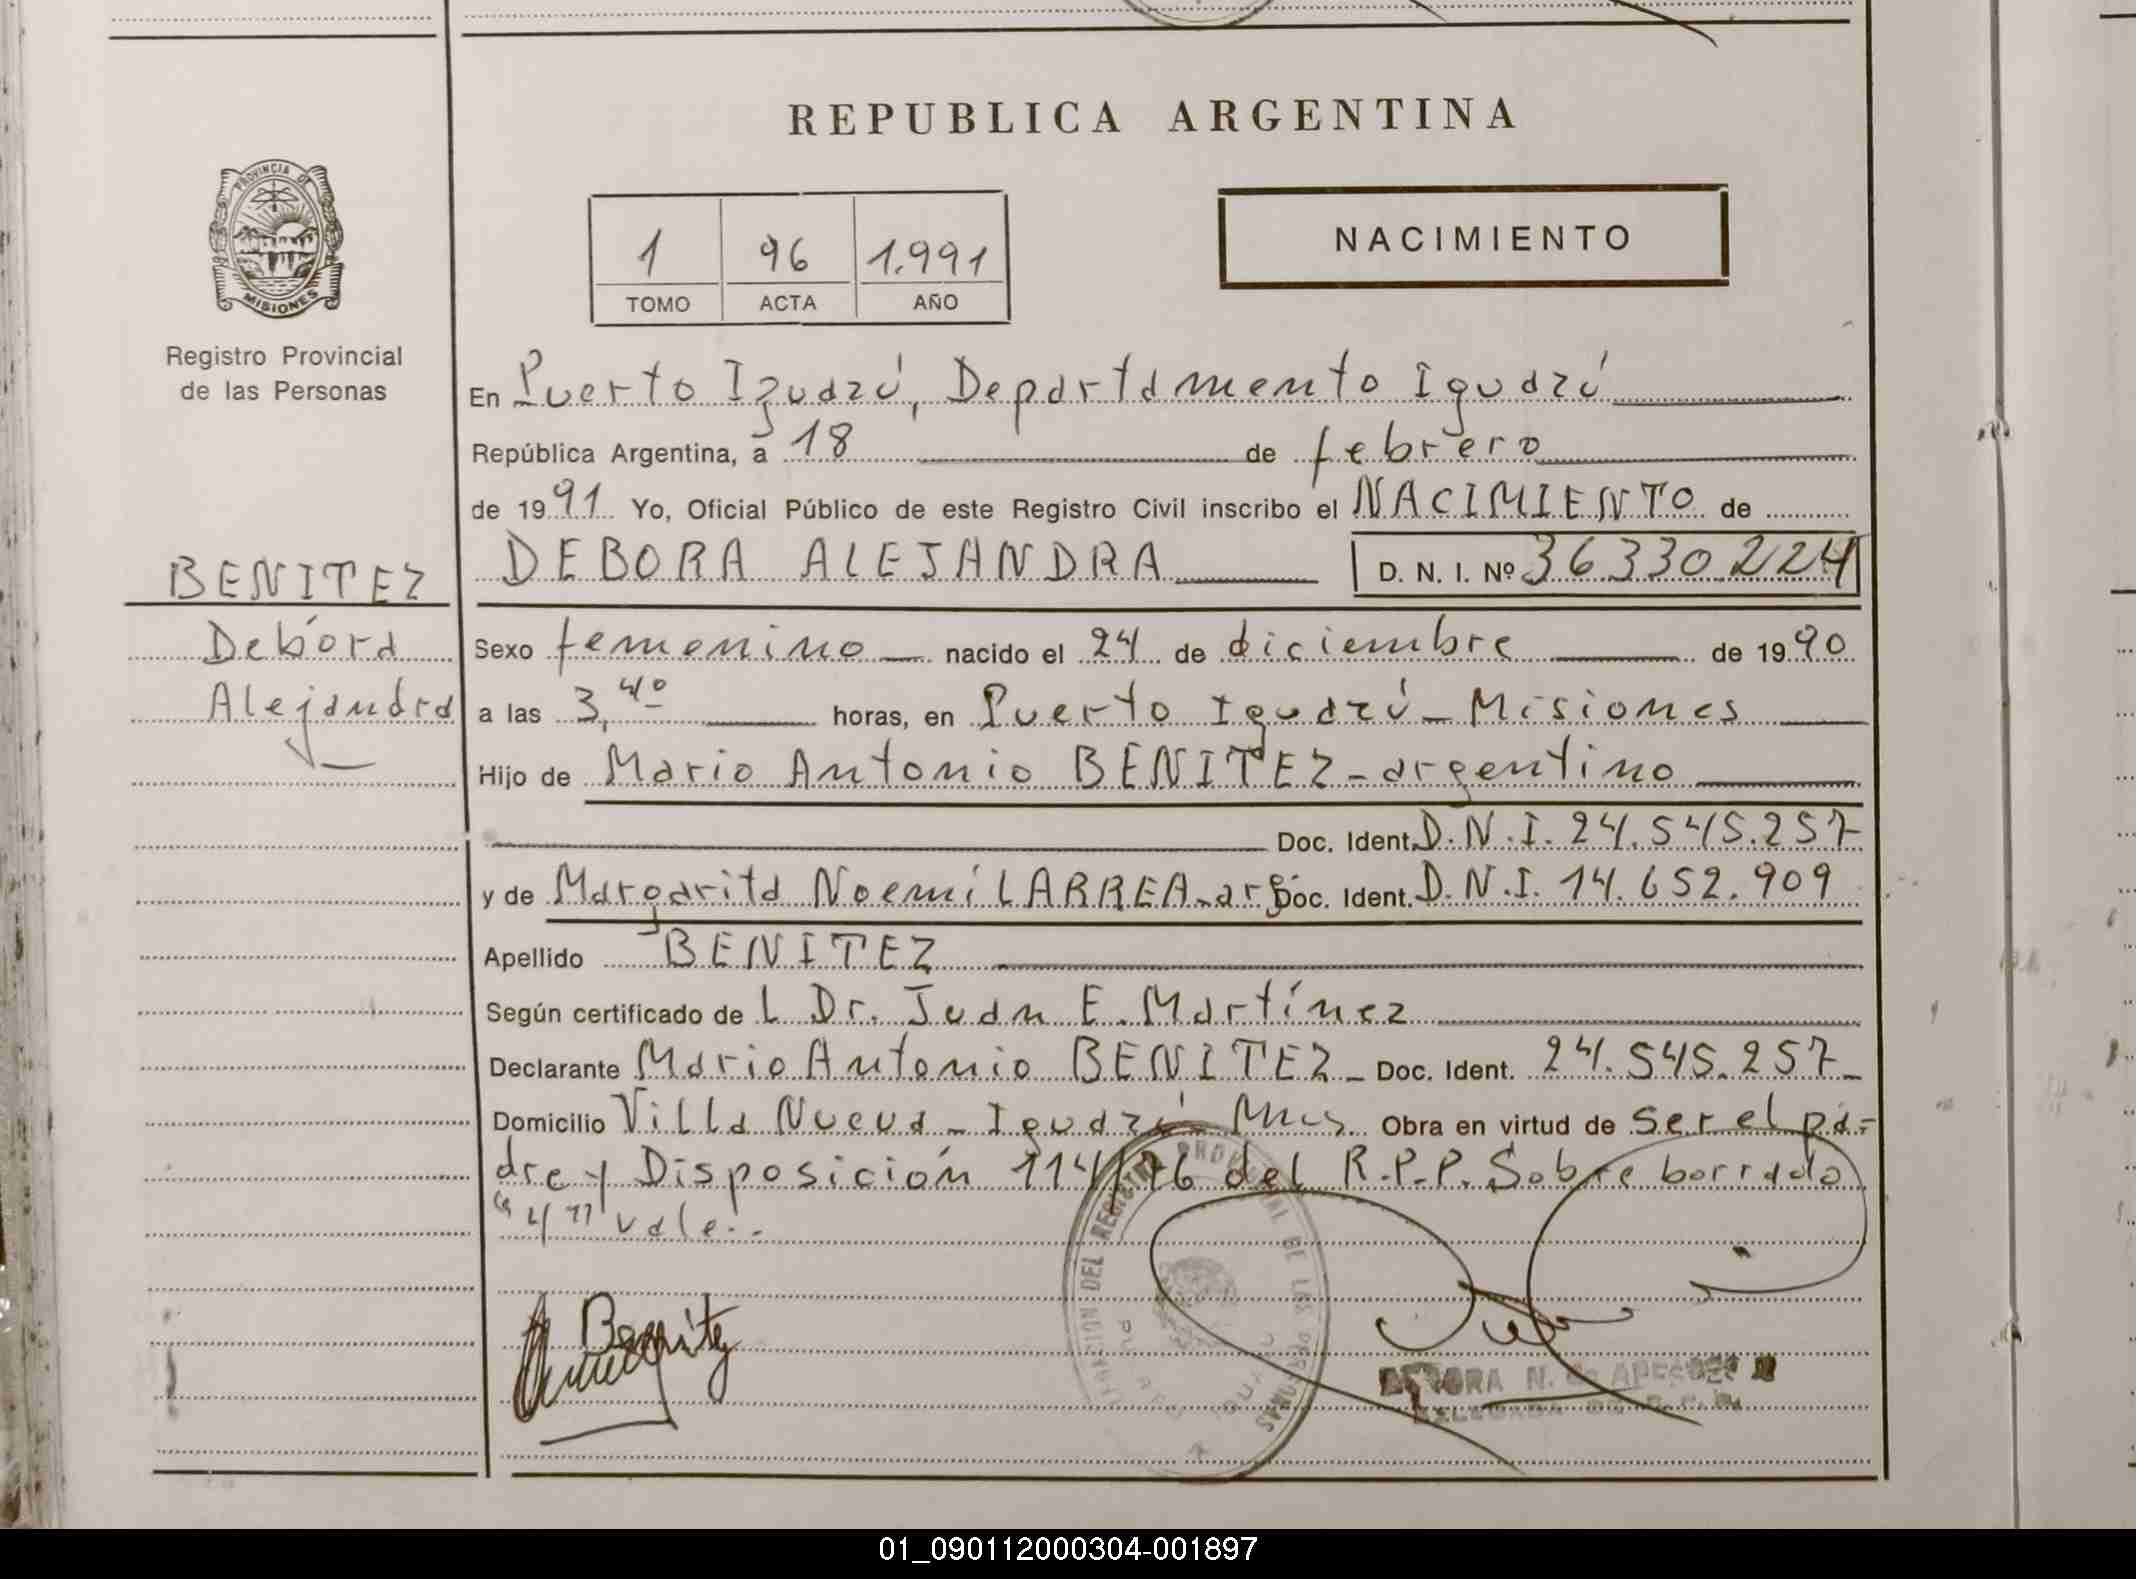 REPUBLICA ARGENTINA
PROVINCIA DE
MISIONES
Registro Provincial
de las Personas
1 96 1.991
TOMO ACTA AÑO
NACIMIENTO
En Puerto Iguazú, Departamento Iguazú
República Argentina, a 18 de febrero
de 1991 Yo, Oficial Público de este Registro Civil inscribo el NACIMIENTO de
DEBORA ALEJANDRA D. N. I. Nº 36330224
BENITEZ
Debora
Alejandra
Sexo femenino nacido el 24 de diciembre de 1990
a las 3,40 horas, en Puerto Iguazú - Misiones
Hijo de Mario Antonio BENITEZ - argentino
Doc. Ident. D.N.I. 24.545.257
y de Margarita Noemí LARREA - arg Doc. Ident. D.N.I. 14.652.909
Apellido BENITEZ
Según certificado de L Dr. Juan E. Martínez
Declarante Mario Antonio BENITEZ - Doc. Ident. 24.545.257-
Domicilio Villa Nueva - Iguazú - Mnes Obra en virtud de ser el pa-
dre y Disposición 114/76 del R.P.P. Sobre borrado
"4" vale.-
Benitez
DE LAS PERSONAS
01_090112000304-001897